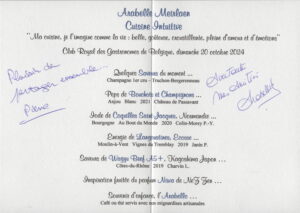 Arabelle Meirlaen
Cuisine Intuitive
"Ma cuisine, je l'imagine comme la vie : belle, goûteuse, croustillante, pleine d'amour et d'émotions"
Club Royal des Gastronomes de Belgique, dimanche 20 octobre 2024
Plaisir de
partager ensemble...
Quelques Saveurs du moment ...
Champagne 1er cru - Truchon-Bergeronneau
Peps de Bouchots et Champignons ...
Anjou Blanc 2021 Château de Passavant
Iode de Coquilles Saint Jacques, Normandie ...
Bourgogne Au Bout du Monde 2020 Colin-Morey P.-Y.
Envoyée de Langoustines, Ecosse ...
Moulin-à-Vent Vignes du Tremblay 2019 Janin P.
Saveurs de Wagyu Beef A5+, Kagoshima Japon ...
Côtes-du-Rhône 2019 Charvin L.
Inspiration fruitée du parfum Nawa de NeZ Zen ...
Saveurs d'enfance, l'Arabelle ...
Café ou thé servis avec nos mignardises artisanales